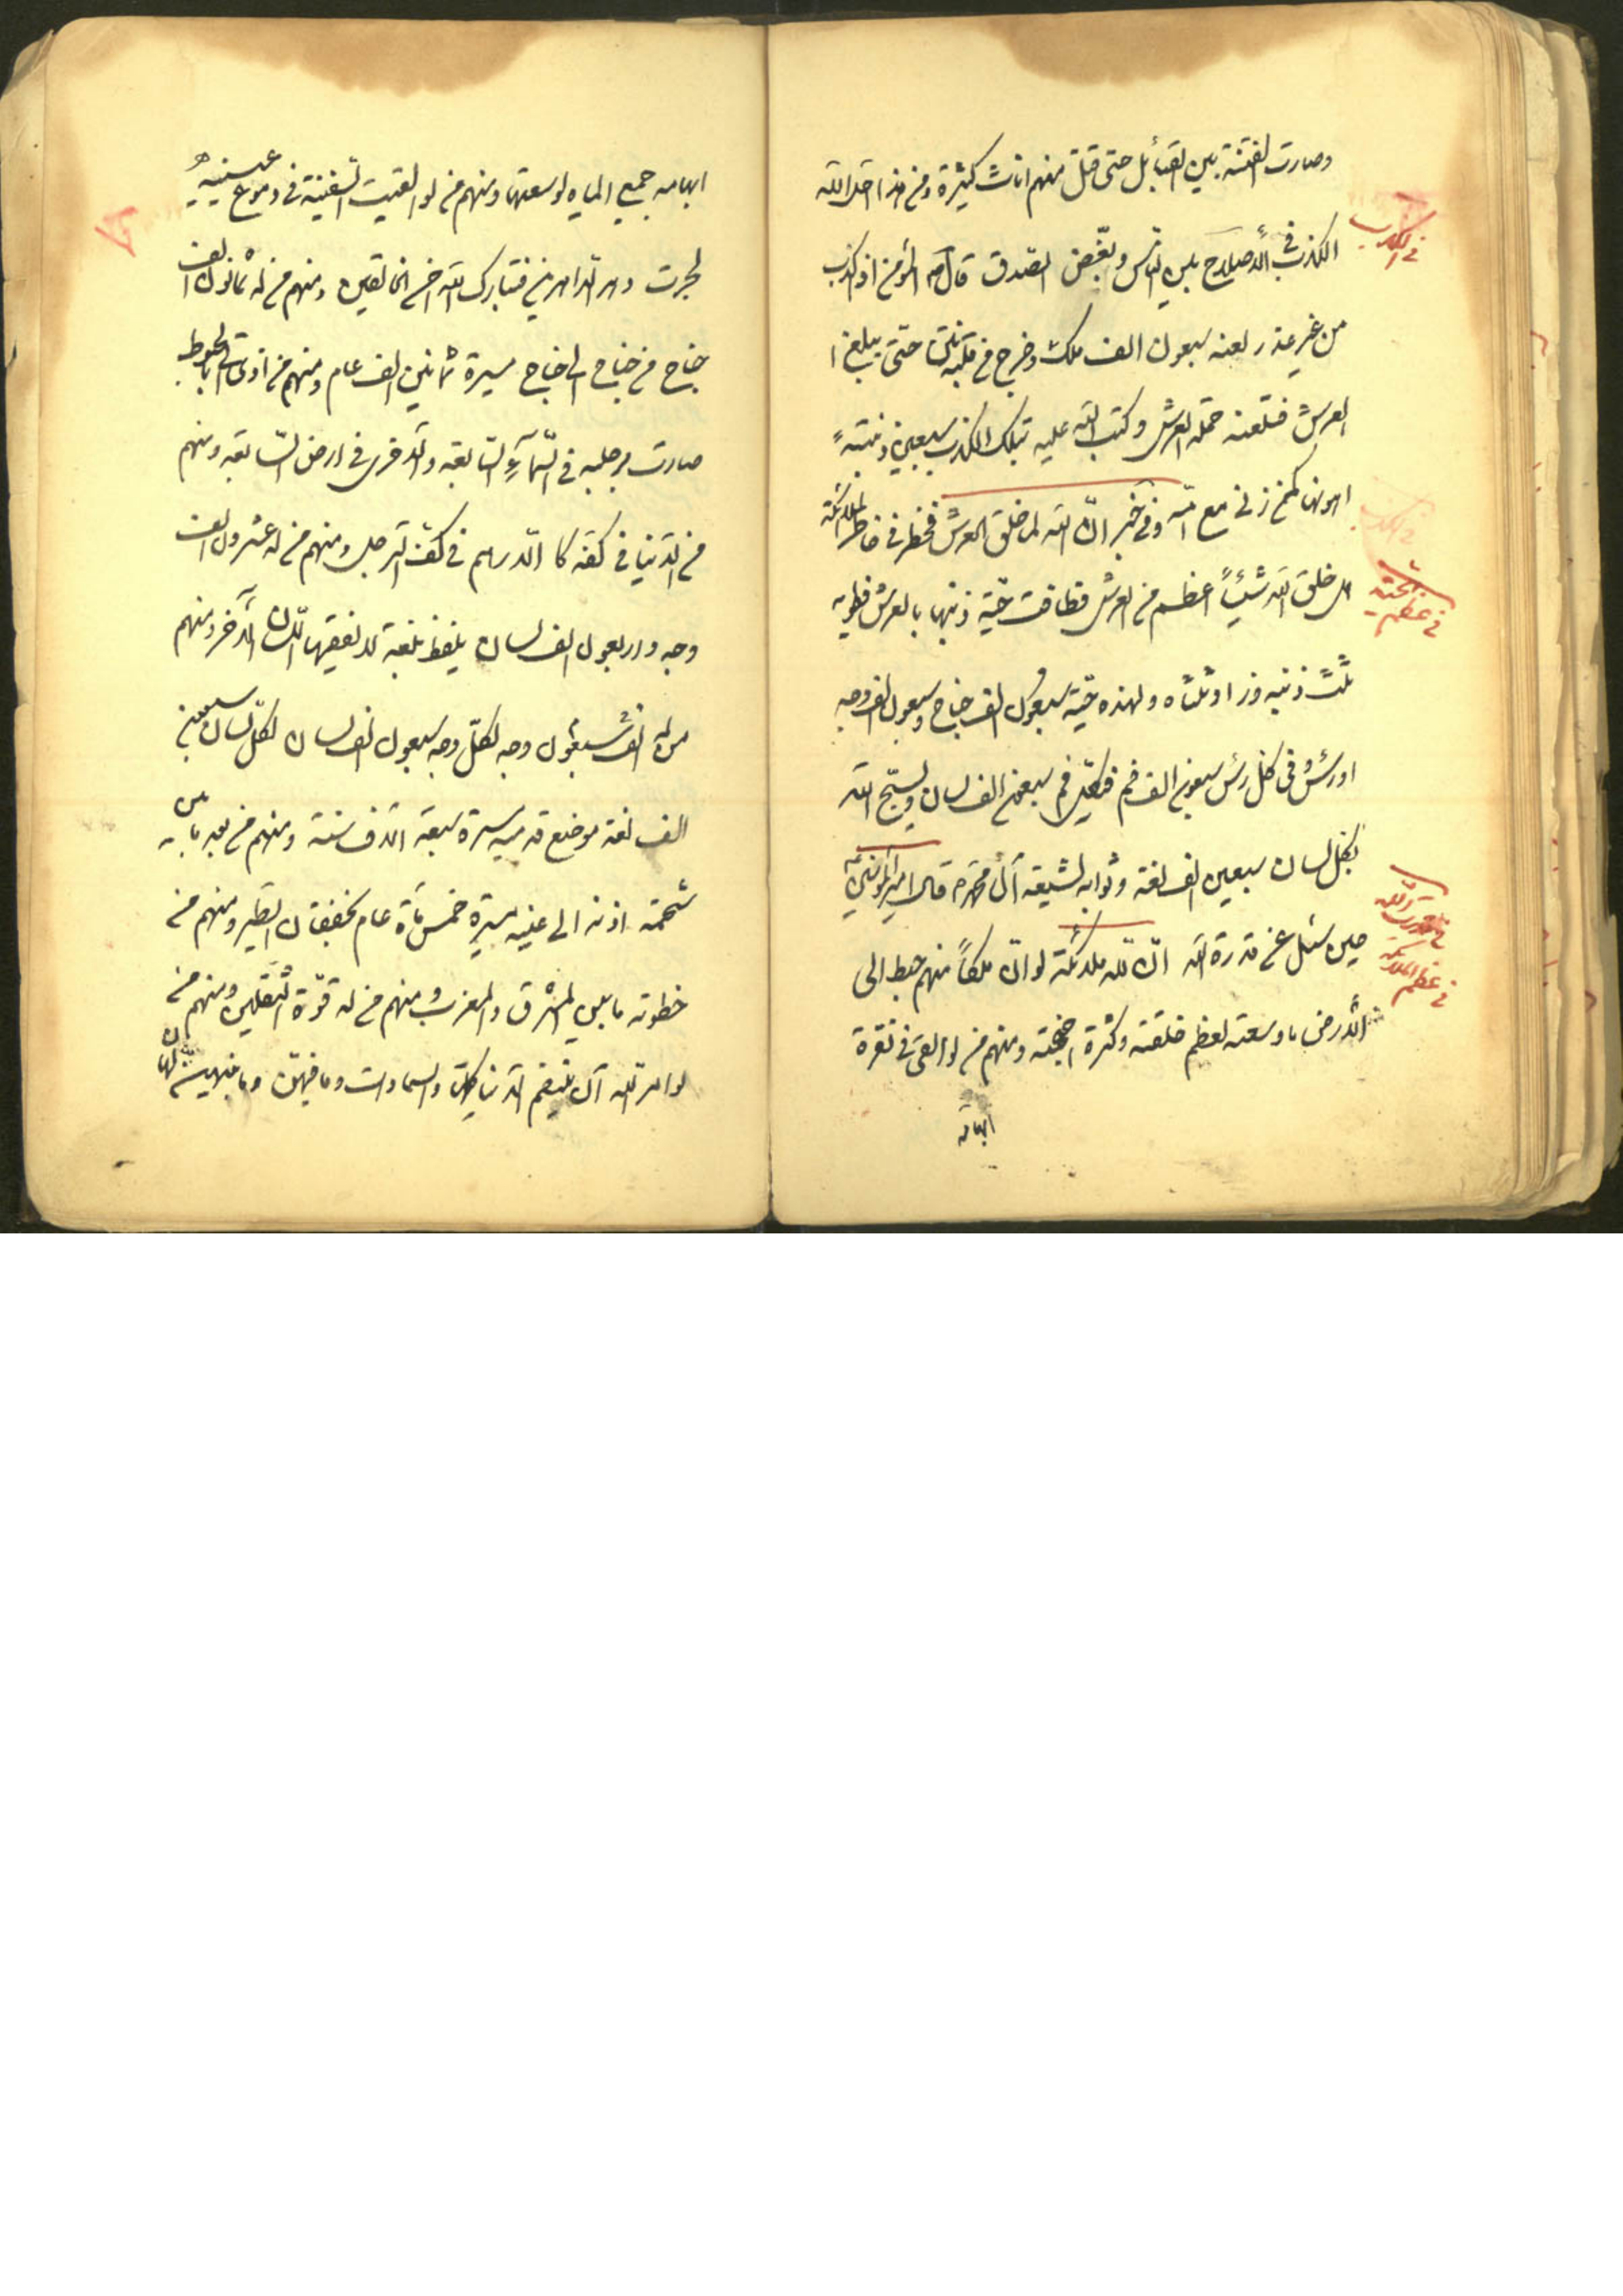 وصارت الفتنة بين القبائل حتى قتل منهم اناث كثيرة ومن هذا احل الله
في الكذب
الكذب في الأصلاح بين الناس وبغض الصدق قال المؤمن اذا كذب
من غير عذر لعنه سبعون الف ملك وخرج من قلبه نتن حتى يبلغ ا
العرش فتلعنه حملة العرش وكتب الله عليه بتلك الكذب سبعين زنية
اهونها كمن زنى مع امه وفي خبر ان الله لما خلق العرش فخطر في خاطر الملائكة
في عظم الحية
هل خلق الله شيئاً اعظم من العرش فطافت حية ذنبها بالعرش فطويه
ثلث ذنبه وزاد ثلثاه ولهذه حية سبعون الف جناح وسبعون الف وجه
او رئس وفي كل رئس سبعون الف فم في كل فم سبعون الف لسان ويسبح الله
بكل لسان سبعين الف لغة وثوابه لشيعة آل محمد قال امير المؤمنين
في قدرت الله
حين سئل عن قدرة الله ان لله ملائكة لو ان ملكاً منهم هبط الى
في عظم الملائكة
الأرض ما وسعته لعظم خلقته وكثرة اجنحته ومنهم من لو القى في نقرة
ابهامه
ابهامه جميع المياه لوسعتها ومنهم من لو القيت السفينة في دموع عينيه
لجرت دهر الداهرين فتبارك الله احسن الخالقين ومنهم من له ثمانون الف
جناح من جناح الى جناح مسيرة ثمانين الف عام ومنهم من اذا
صارت رجليه في السماء السابعة والأخرى في ارض السابعة ومنهم
من الدنيا في كفه كالدراهم في كف الرجل ومنهم من له عشرون الف
وجه واربعون الف لسان يلفظ بلغة لا تفقهها اللسان الآخر ومنهم
من له الف سبعون وجه لكل وجه سبعون الف لسان لكل لسان سبعين
الف لغة موضع قدميه مسيرة سبعة آلاف سنة ومنهم من بعد ما بين
شحمة اذنه الى عنيه مسيرة خمس مأة عام بخفقان الطير ومنهم من
خطوته ما بين المشرق والمغرب ومنهم من له قوة الثقلين ومنهم من
لو امر الله ان يلتقم الدنيا كلها والسماوات وما فيهن وما بينهن لهان